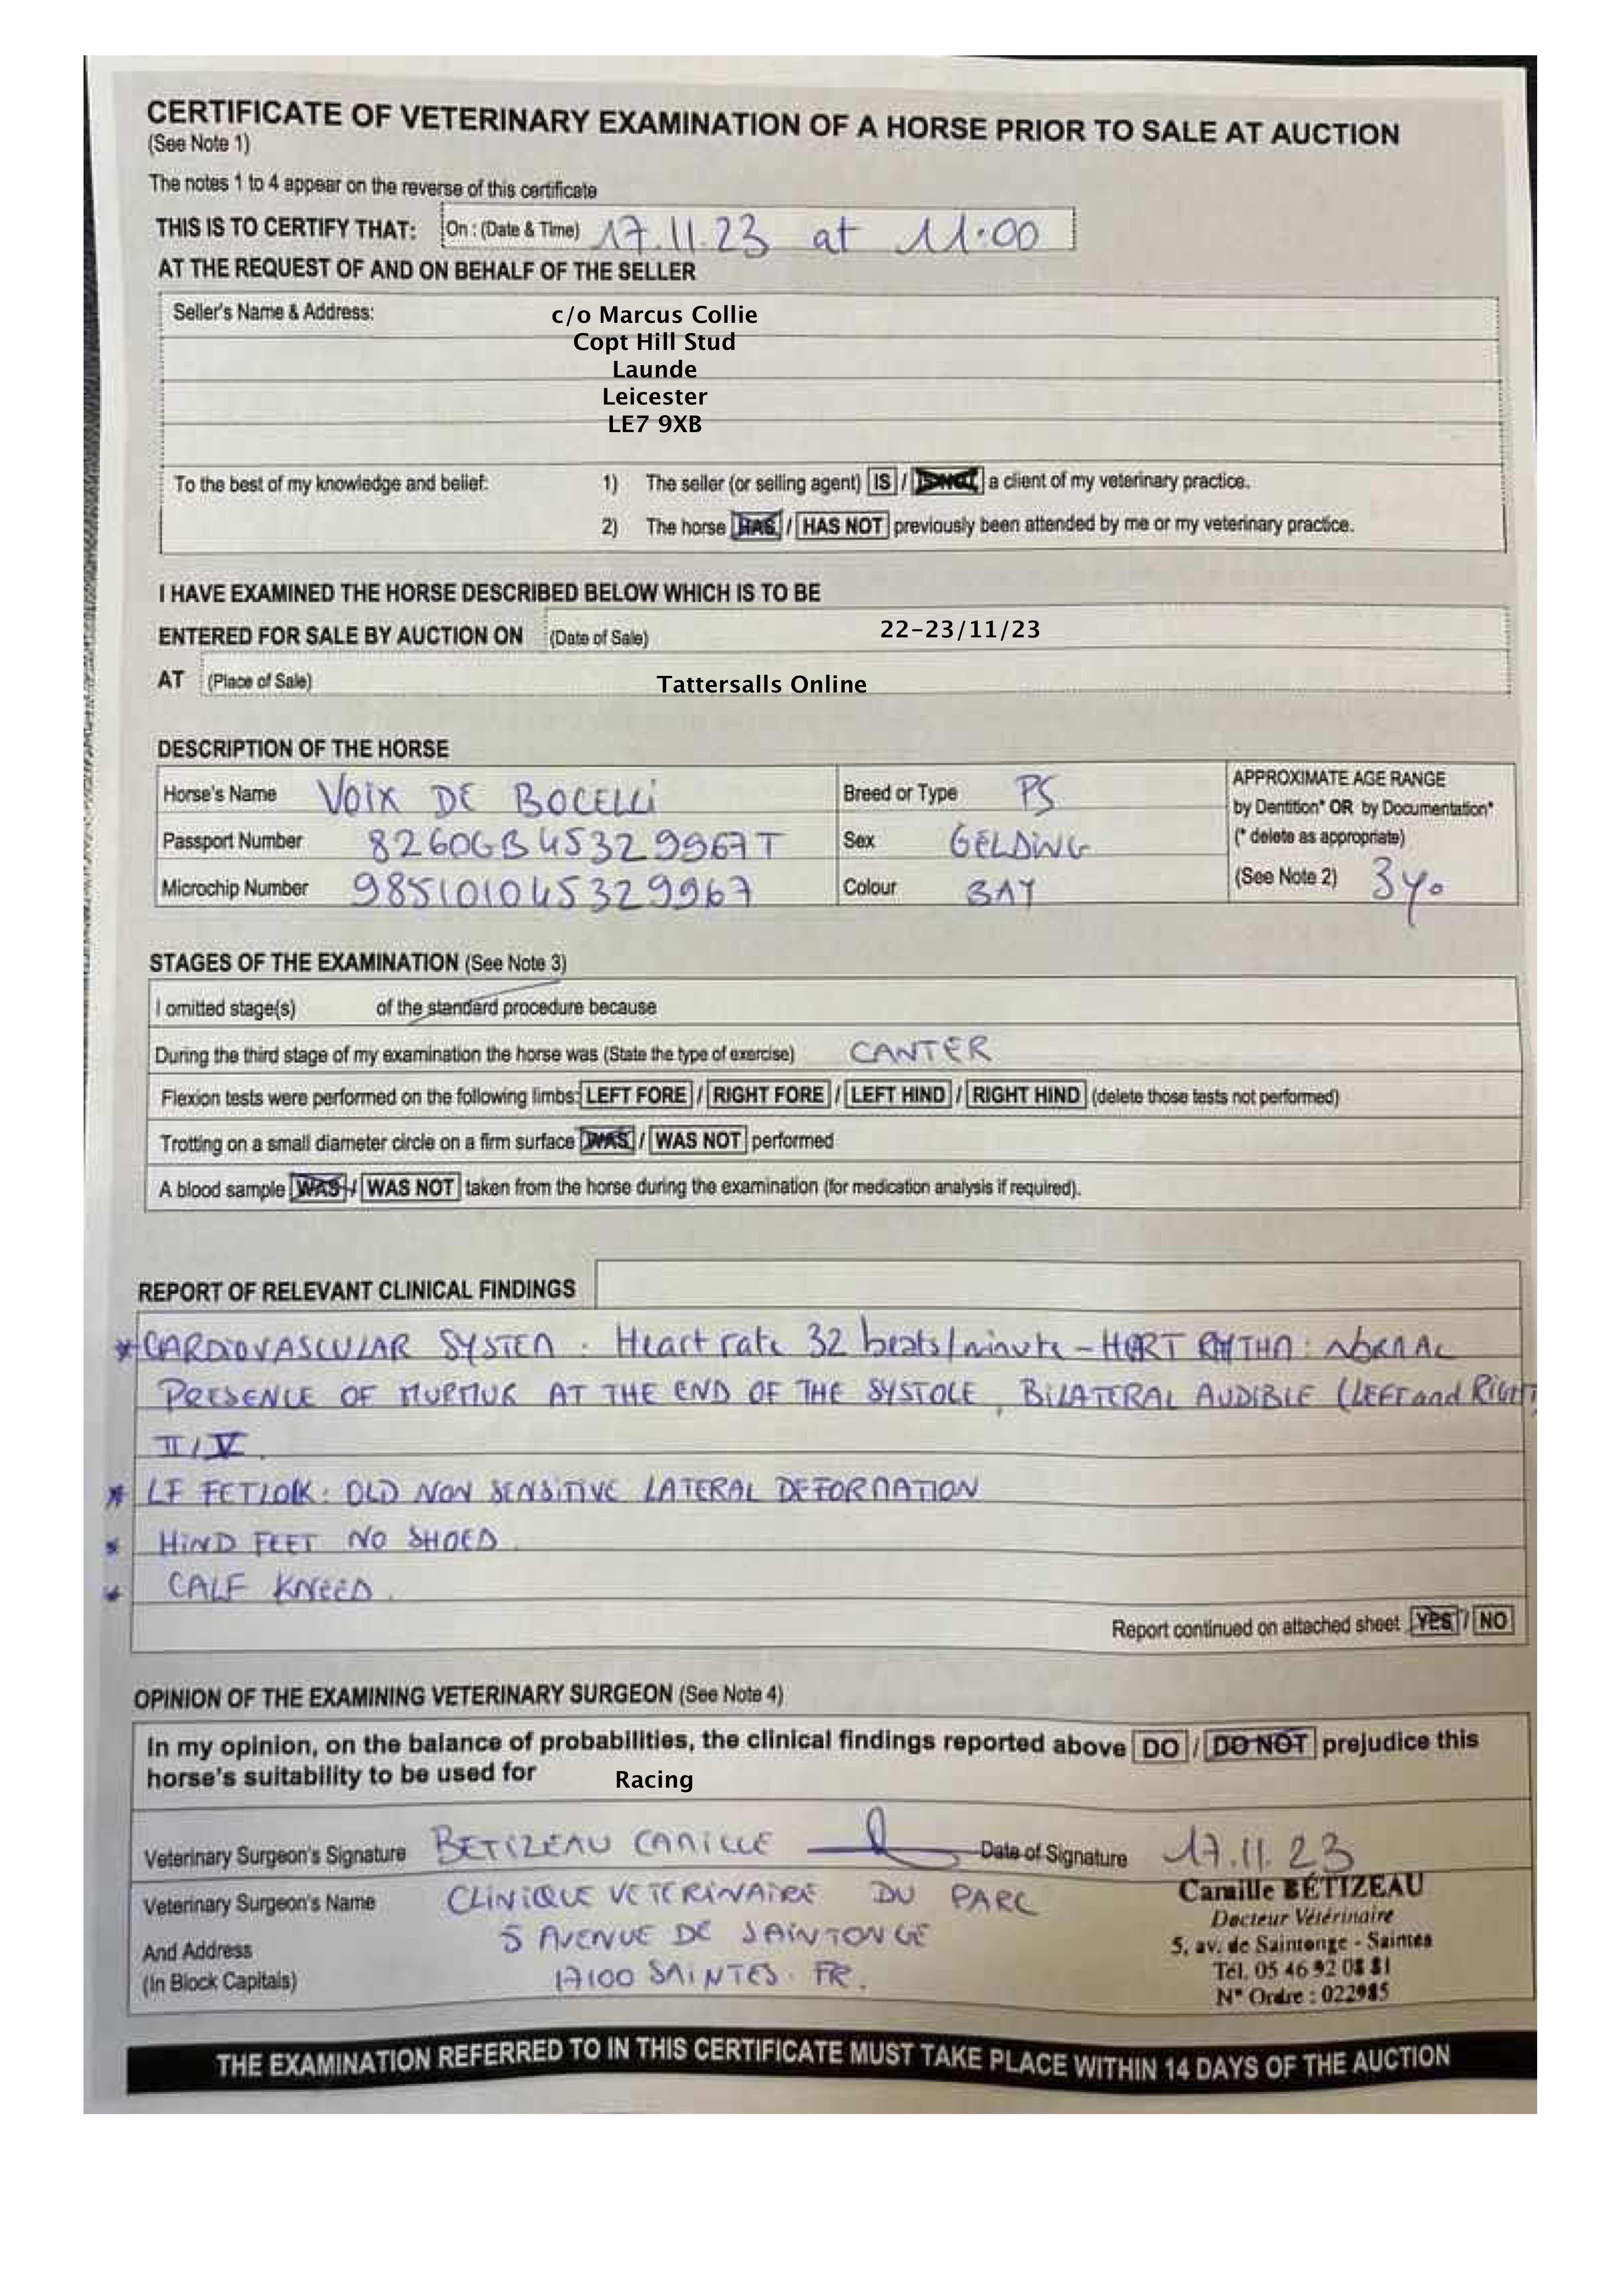 CERTIFICATE OF VETERINARY EXAMINATION OF A HORSE PRIOR TO SALE AT AUCTION
(See Note 1)
The notes 1 to 4 appear on the reverse of this certificate
THIS IS TO CERTIFY THAT: On : (Date & Time) 17.11.23 at 11:00
AT THE REQUEST OF AND ON BEHALF OF THE SELLER
Seller's Name & Address: c/o Marcus Collie
Copt Hill Stud
Launde
Leicester
LE7 9XB
To the best of my knowledge and belief: 1) The seller (or selling agent) IS / IS NOT a client of my veterinary practice.
2) The horse HAS / HAS NOT previously been attended by me or my veterinary practice.
I HAVE EXAMINED THE HORSE DESCRIBED BELOW WHICH IS TO BE
ENTERED FOR SALE BY AUCTION ON (Date of Sale) 22-23/11/23
AT (Place of Sale) Tattersalls Online
DESCRIPTION OF THE HORSE
Horse's Name VOIX DE BOCELLI Breed or Type PS APPROXIMATE AGE RANGE
by Dentition* OR by Documentation*
Passport Number 8260GB45329967T Sex GELDING (* delete as appropriate)
Microchip Number 985101045329967 Colour BAY (See Note 2) 3yo
STAGES OF THE EXAMINATION (See Note 3)
I omitted stage(s) of the standard procedure because
During the third stage of my examination the horse was (State the type of exercise) CANTER
Flexion tests were performed on the following limbs: LEFT FORE / RIGHT FORE / LEFT HIND / RIGHT HIND (delete those tests not performed)
Trotting on a small diameter circle on a firm surface WAS / WAS NOT performed
A blood sample WAS / WAS NOT taken from the horse during the examination (for medication analysis if required).
REPORT OF RELEVANT CLINICAL FINDINGS
* CARDIOVASCULAR SYSTEM : Heart rate 32 beats/minute - HEART RHYTHM : NORMAL
PRESENCE OF MURMUR AT THE END OF THE SYSTOLE, BILATERAL AUDIBLE (LEFT and RIGHT)
II/V.
* LF FETLOCK: OLD NON SENSITIVE LATERAL DEFORMATION
* HIND FEET NO SHOED.
* CALF KNEED.
Report continued on attached sheet YES / NO
OPINION OF THE EXAMINING VETERINARY SURGEON (See Note 4)
In my opinion, on the balance of probabilities, the clinical findings reported above DO / DO NOT prejudice this
horse's suitability to be used for Racing
Veterinary Surgeon's Signature BETIZEAU CAMILLE Date of Signature 17.11.23
Veterinary Surgeon's Name CLINIQUE VETERINAIRE DU PARC
And Address 5 AVENUE DE SAINTONGE
(In Block Capitals) 17100 SAINTES. FR.
Camille BÉTIZEAU
Docteur Vétérinaire
5, av. de Saintonge - Saintes
Tél. 05 46 92 08 81
N° Ordre : 022985
THE EXAMINATION REFERRED TO IN THIS CERTIFICATE MUST TAKE PLACE WITHIN 14 DAYS OF THE AUCTION